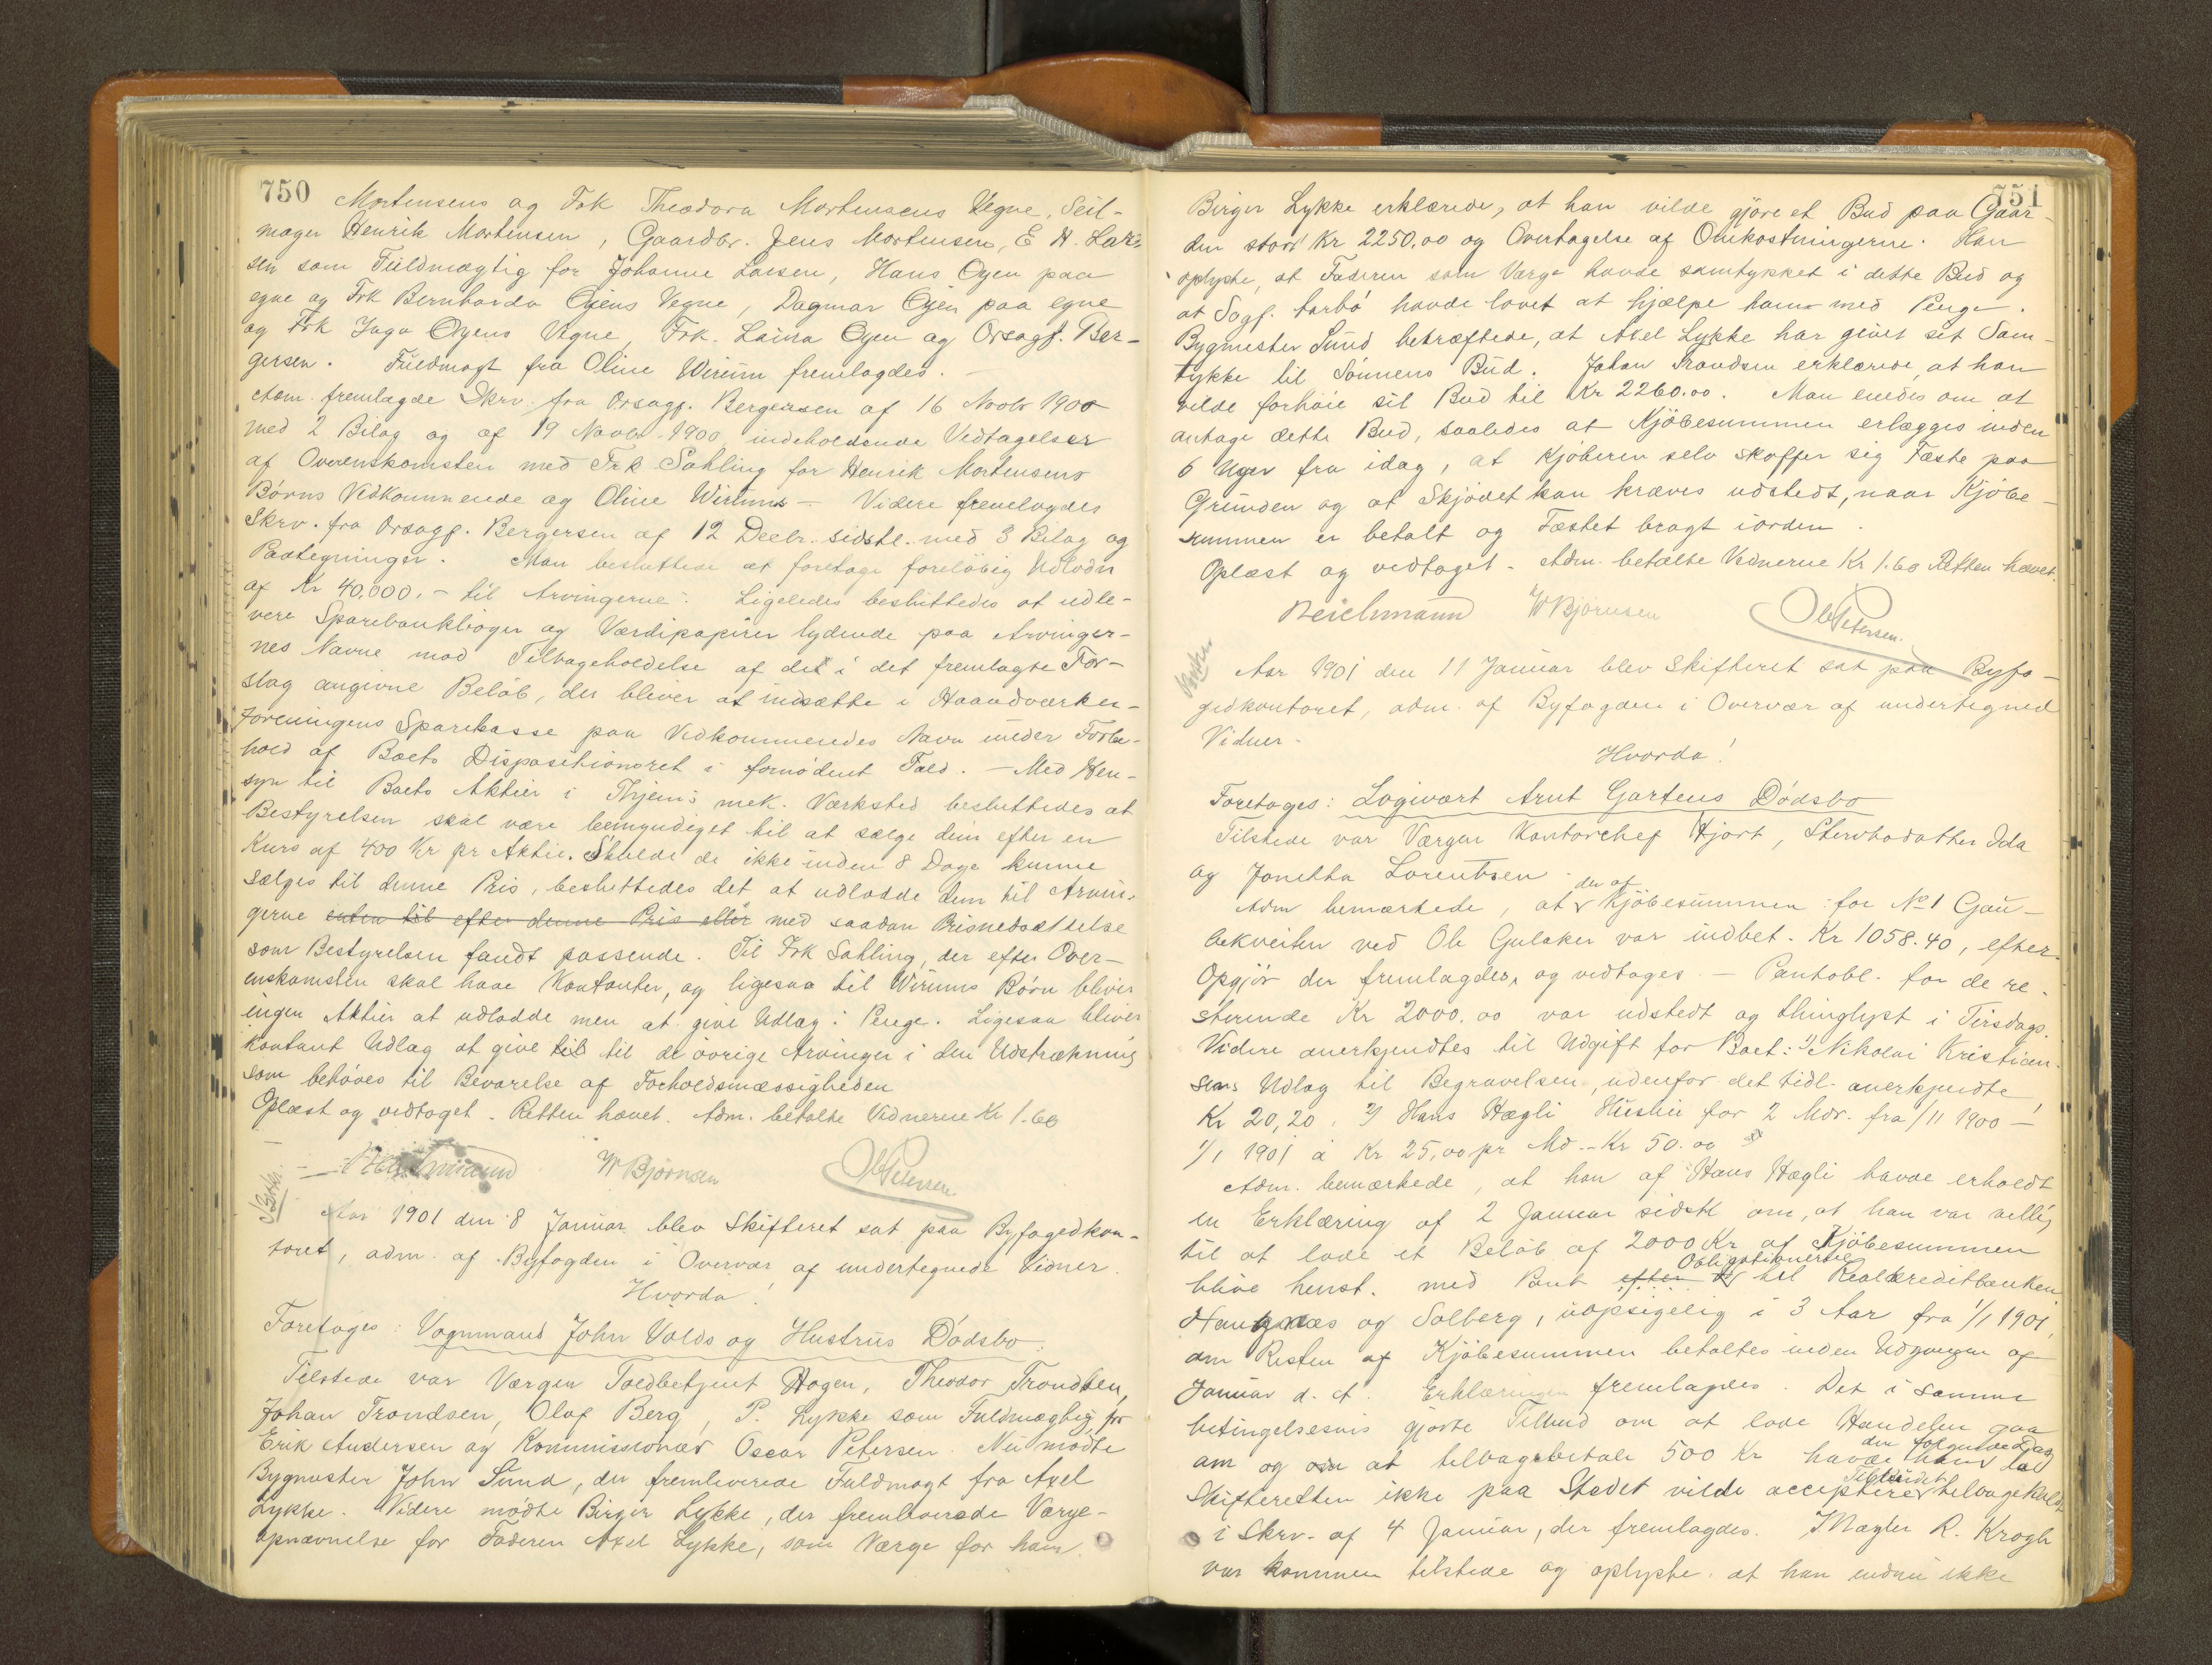 750
Mortensens og Frk Theodora Mortensens Vegne, Seil-
mager Henrik Mortensen, Gaardbr. Jens Mortensen, E H. Lar-
sen som Fuldmægtig for Johanne Larsen, Hans Oyen paa
egne og Frk Bernharda Oyens Vegne, Dagmar Oyen paa egne
og Frk Inga Oyens Vegne, Frk. Laura Oyen og Orsagf. Ber-
gersen. Fuldmagt fra Oline Wirum fremlagdes.
Adm. fremlagde Skrv. fra Orsagf. Bergersen af 16 Novbr 1900
med 2 Bilag og af 19 Novbr. 1900 indeholdende Vedtagelser
af Overenskomsten med Frk Sahling for Henrik Mortensens
Børns Vedkommende og Oline Wirums - Videre fremlagdes
Skrv. fra Orsagf. Bergersen af 12 Decbr. sidstl. med 3 Bilag og
Paategninger. Man besluttede at foretage foreløbig Udlodn
af Kr 40,000.- til Arvingerne. Ligeledes besluttedes at udle-
vere Sparebankbøger og Værdipapirer lydende paa Arvinger-
nes Navne mod Tilbageholdelse af det i det fremlagte For-
slag angivne Beløb, der bliver at indsætte i Haandværker-
foreningens Sparekasse paa Vedkommendes Navn under Forbe-
hold af Boets Dispositionsret i fornødent Fald. - Med Hen-
syn til Boets Aktier i Thjems mek. Værksted besluttedes at
Bestyrelsen skal være bemyndiget til at sælge dem efter en
Kurs af 400 Kr pr Aktie. Skulde de ikke inden 8 Dage kunne
sælges til denne Pris, besluttedes det at udlodde dem til Arvin-
gerne enten til efter denne Pris eller med saadan Prisnedsættelse
som Bestyrelsen fandt passende. Til Frk Sahling, der efter Over-
enskomsten skal have Kontanter, og ligesaa til Wirums Børn bliver
ingen Aktier at udlodde men at give Udlæg i Penge. Ligesaa bliver
kontant Udlæg at give til til de øvrige Arvinger i den Udstrækning
som behøves til Bevarelse af Forholdsmæssigheden
Oplæst og vedtaget. Retten hævet. Adm. betalte Vidnerne Kr 1.60
W Bjørnsen Ol Petersen
Aar 1901 den 8 Januar blev Skifteret sat paa Byfogedkon-
toret, adm. af Byfogden i Overvær af undertegnede Vidner.
Hvorda!
Foretages: Vognmand John Valds og Hustrus Dødsbo.
Tilstede var Værgen Toldbetjent Hagen, Theodor Trondsen,
Johan Trondsen, Olaf Berg, P. Lykke som Fuldmægtig for
Erik Andersen og Kommissionær Oscar Petersen. Nu mødte
Bygmester John Sund, der fremleverede Fuldmagt fra Axel
Lykke. Videre mødte Birger Lykke, der fremleverede Værge-
opnævnelse for Faderen Axel Lykke, som Værge for ham.
751
Birger Lykke erklærede, at han vilde gjøre et Bud paa Gaar-
den stort Kr 2250,00 og Overtagelse af Omkostningerne. Han
oplyste, at Faderen som Værge havde samtykket i dette Bud og
at Sagf. havde lovet at hjælpe ham med Penge.
Bygmester Sund bekræftede, at Axel Lykke har givet sit Sam-
tykke til Sønnens Bud. Johan Trondsen erklærede at han
vilde forhøie sit Bud til Kr 2260.00. Man enedes om at
antage dette Bud, saaledes at Kjøbesummen erlægges inden
6 Uger fra idag, at Kjøberen selv skaffer sig Fæste paa
Grunden og at Skjødet kan kræves udstedt, naar Kjøbe-
summen er betalt og Fæstet bragt iorden.
Oplæst og vedtaget. Adm. betalte Vidnerne Kr 1.60 Retten hævet.
Reichmann W Bjørnsen Ol Petersen.
Aar 1901 den 11 Januar blev Skifteret sat paa Byfo-
gedkontoret, adm. af Byfogden i Overvær af undertegned
Vidner.
Hvorda!
Foretages: Logivært Arnt Gartens Dødsbo
Tilstede var Værgen Kontorchef Hjort, Stervbodatter Ida
og Jonetta Lorentsen
der af
Adm bemærkede, at Kjøbesummen for No 1 Gau-
bækveiten ved Ole Gulaker var indbet. Kr 1058.40, efter
Opgjør der fremlagdes, og vedtages. - Pantobl. for de re-
sterende Kr 2000.00 var udstedt og thinglyst i Tirsdags.
Videre anerkjendtes til Udgift for Boet: 1/ Nikolai Kristian-
sens Udlæg til Begravelsen, udenfor det tidl. anerkjendte,
Kr 20,20. 2/ Hans Hægli Husleie for 2 Mdr. fra 1/11 1900 -
1/1 1901 à Kr 25,00 pr Md - Kr 50.00
Adm. bemærkede, at han af Hans Hægli havde erholdt
en Erklæring af 2 Januar sidstl om, at han var villig
til at lade et Beløb af 2000 Kr af Kjøbesummen
Obligationer til
blive henst. med Pant efter til Realkreditbanken
Haugnæs og Solberg, uopsigelig i 3 Aar fra 1/1 1901,
om Resten af Kjøbesummen betaltes inden Udgangen af
Januar d. A. Erklæringen fremlagdes. Det i samme
betingelsesvis gjorte Tilbud om at lade Handelen gaa
den følgende Dag
om og om at tilbagebetale 500 Kr havde han lad
Tilbudet
Skifteretten ikke paa Stedet vilde acceptere tilbagekaldt
i Skrv. af 4 Januar, der fremlagdes. Mægler R. Krogh
var kommen tilstede og oplyste at han endnu ikke